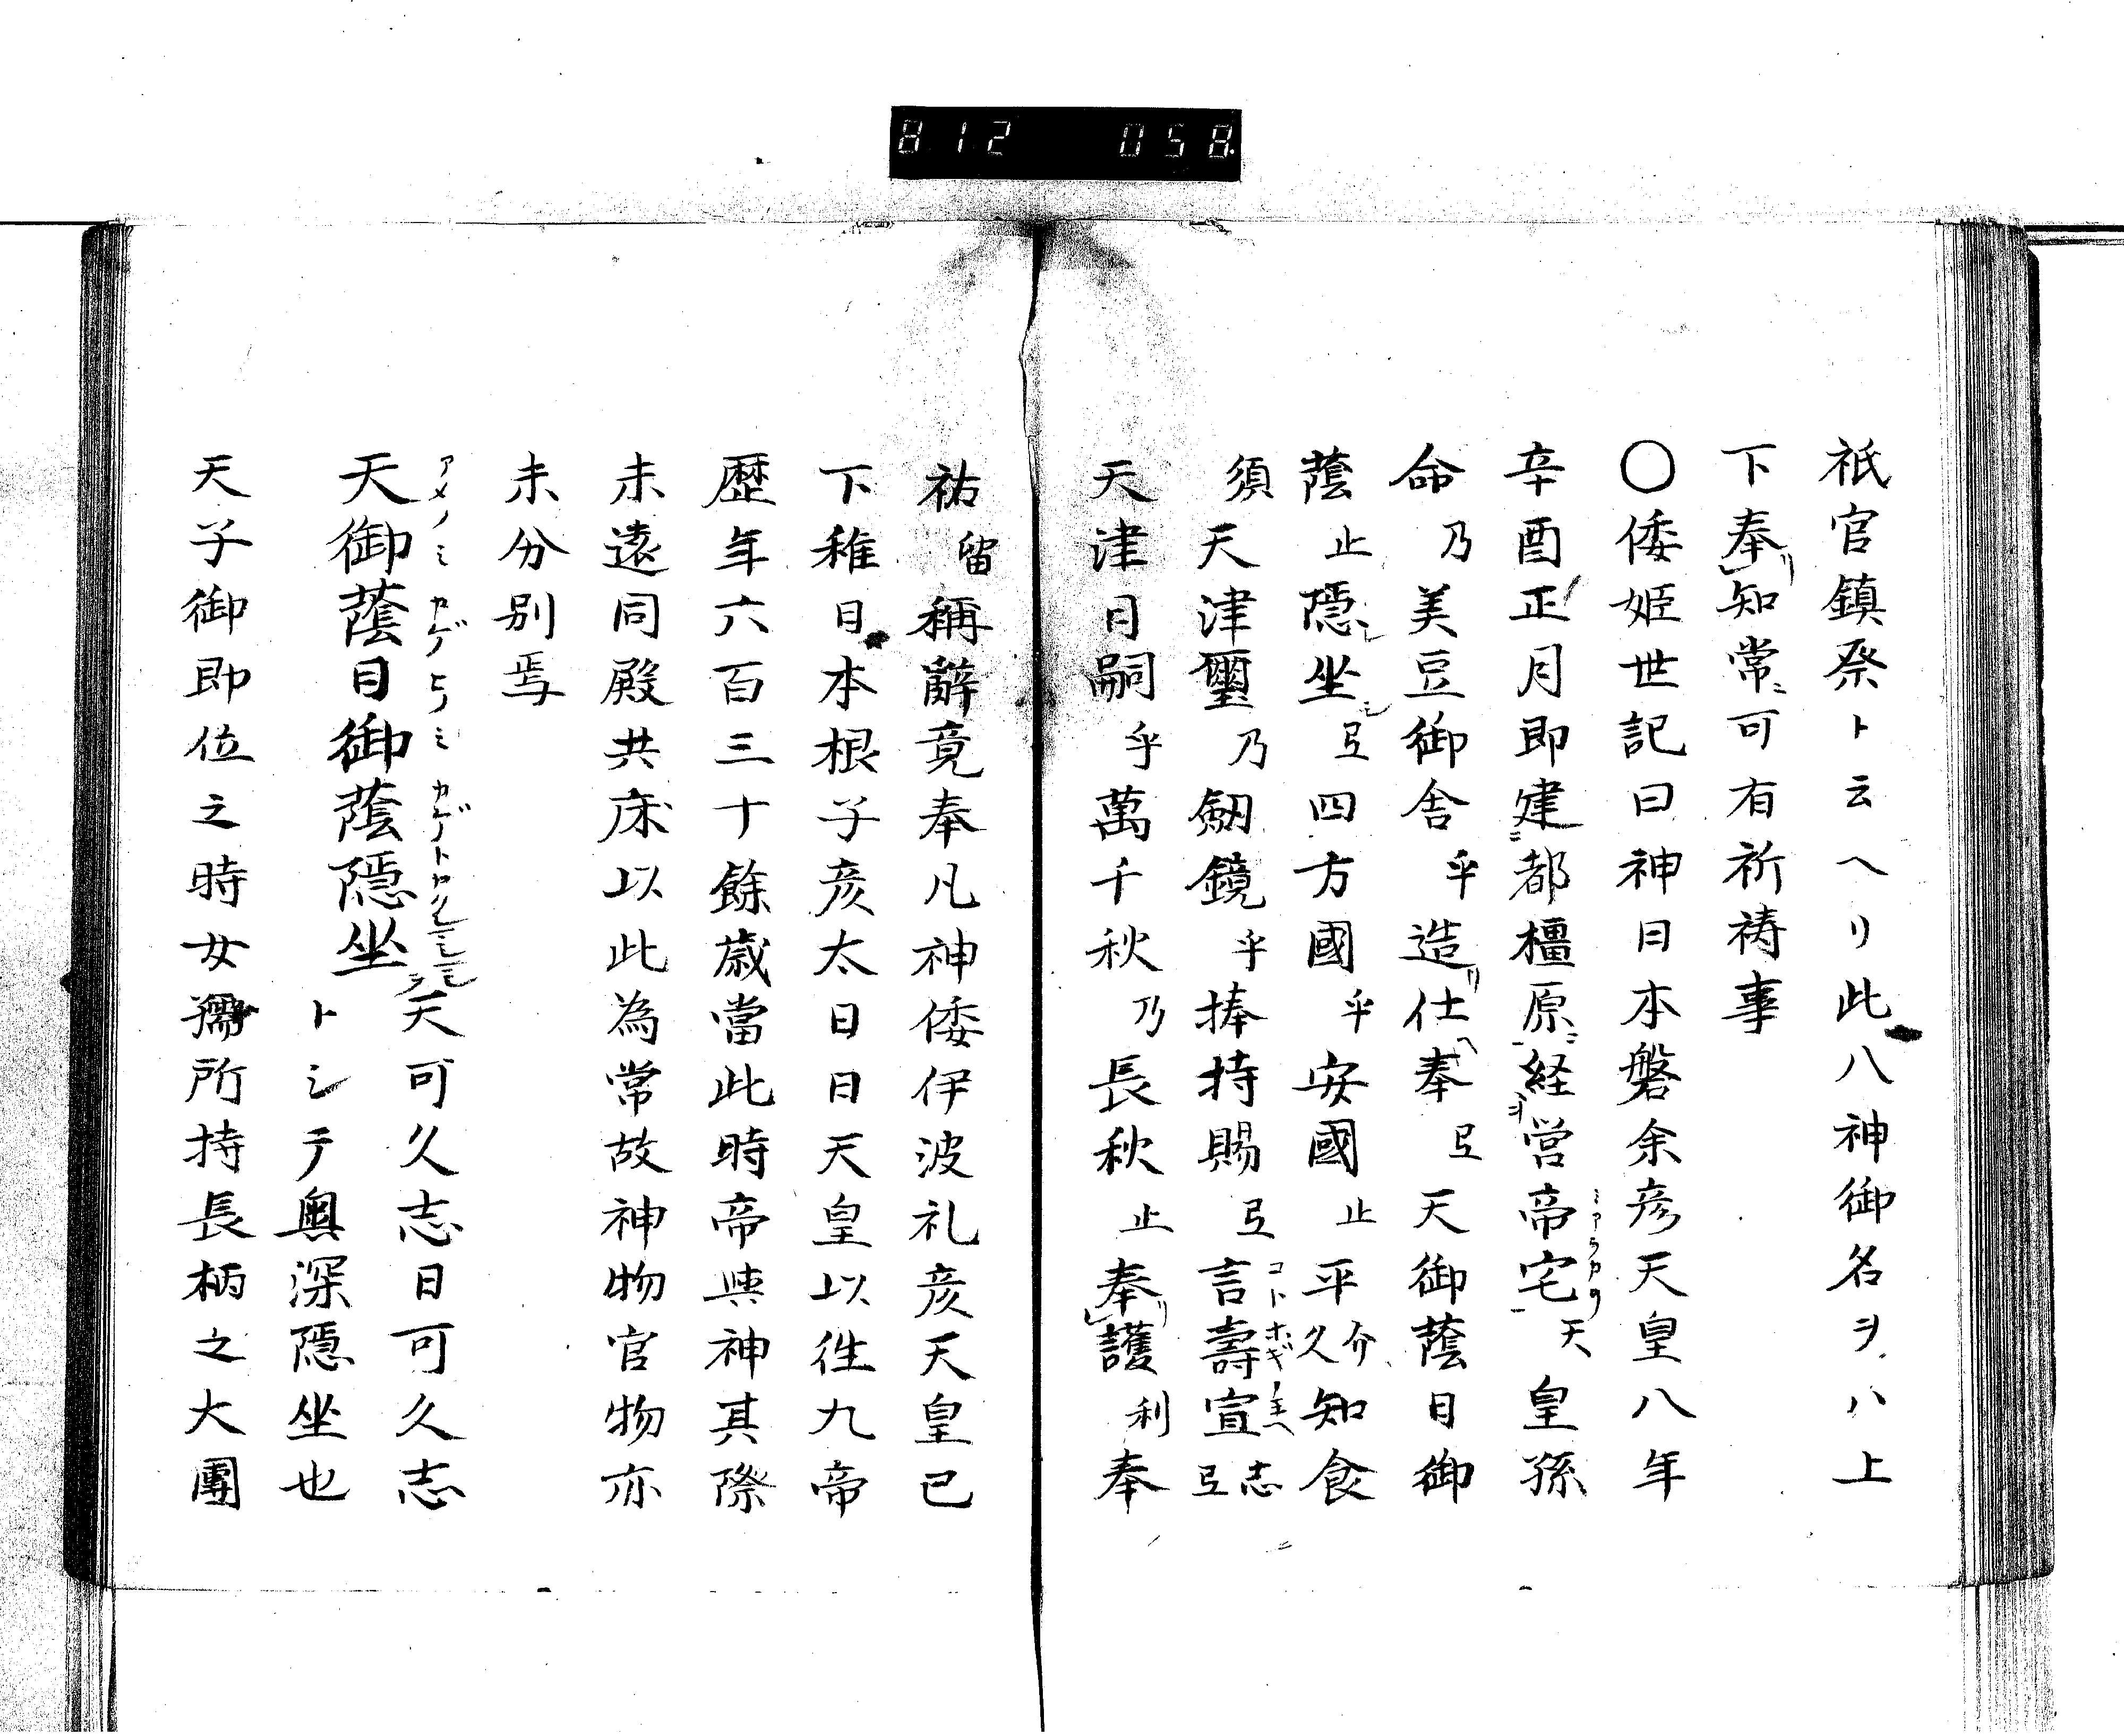 812 058
祇官鎮祭ト云ヘリ此八神御名ヲハ上
下奉知常可有祈祷事
〇倭姫世記曰神日本磐余彦天皇八年
辛酉正月即建都橿原経営帝宅天皇孫
命乃美豆御舎乎造仕奉弖天御蔭日御
蔭止隠坐弖四方國乎安國止平介久知食
須天津璽乃劔鏡乎捧持賜弖言壽宣志弖
天津日嗣乎萬千秋乃長秋止奉護利奉
祐留稱辭竟奉凡神倭伊波礼彦天皇已
下稚日本根子彦太日日天皇以徃九帝
歴年六百三十餘歳當此時帝與神其際
未遠同殿共床以此為常故神物官物亦
未分別焉
天御蔭日御蔭隠坐 天可久志日可久志
トシテ奥深隠坐也
天子御即位之時女孺所持長柄之大團